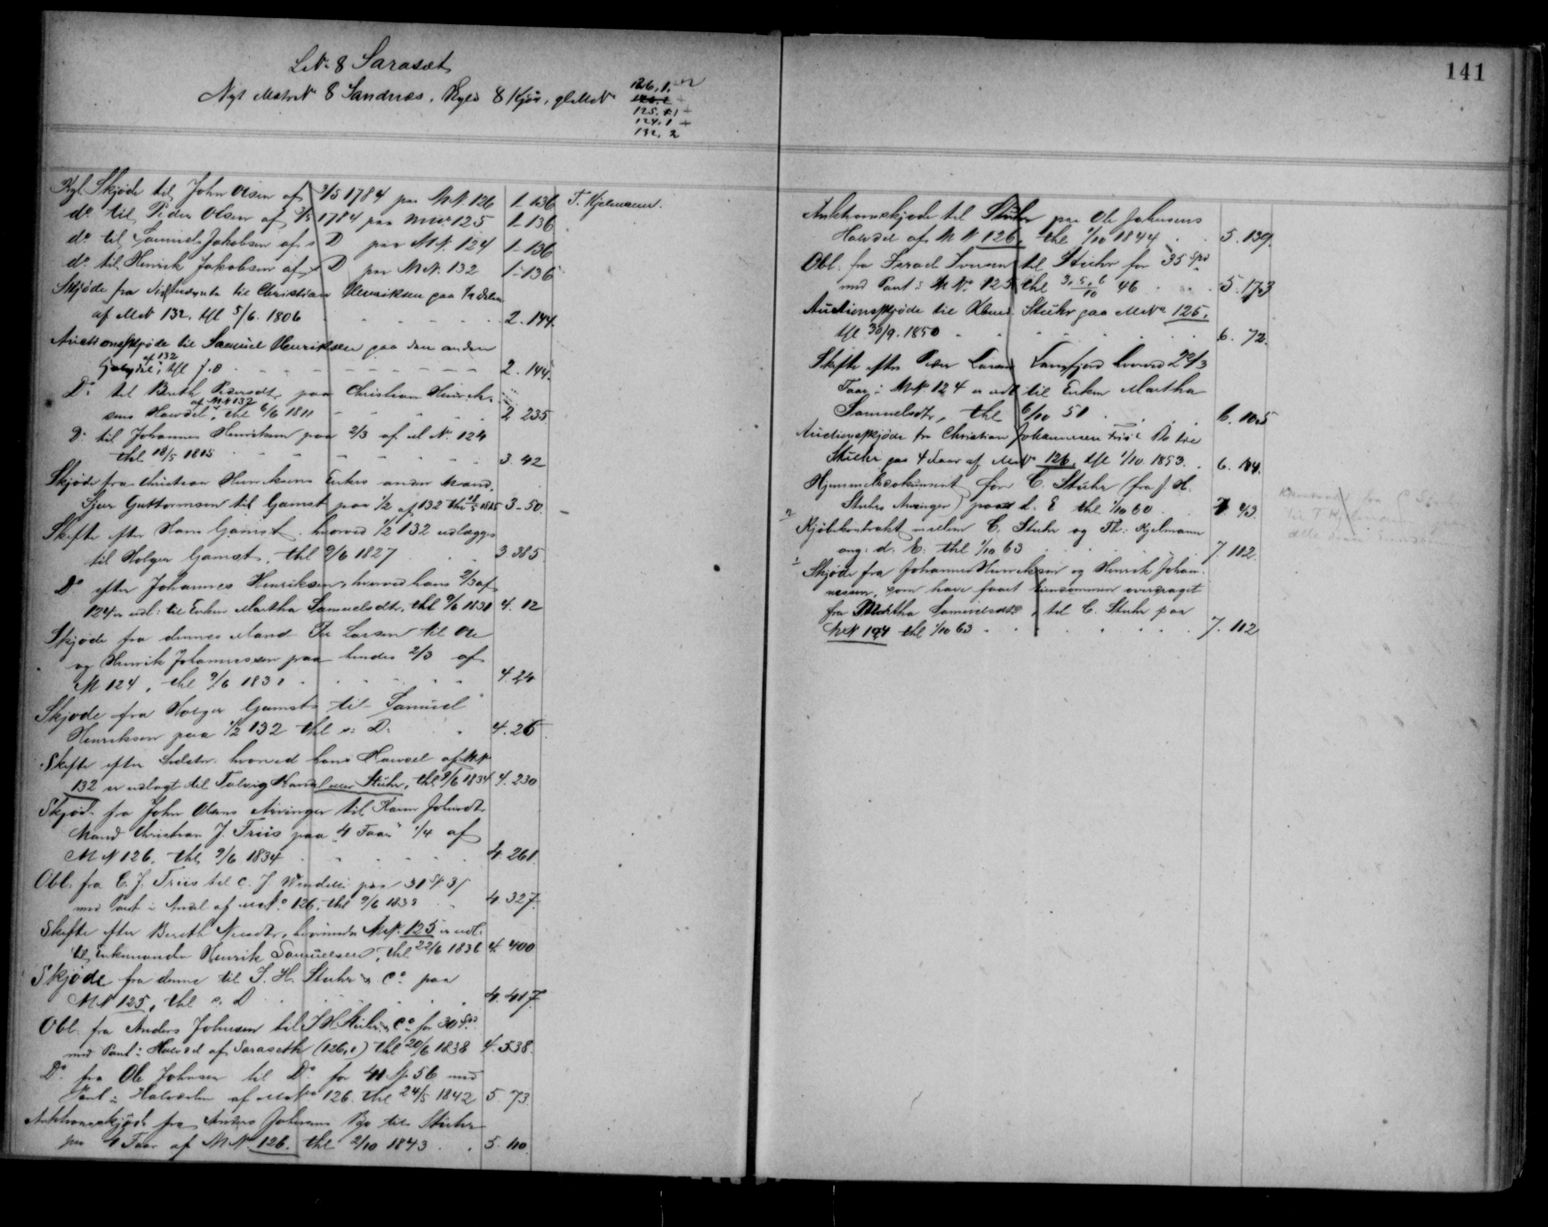 LNº 8 Sarasæt
Nyt MatrN 8 Sandnes, Skyld 8 Kjør, gl MN
126,1.
125,1 +
124,1 +
132, 2
141
Kgl. Skjøde til John Olsen af 2/5 1784 paa MN. 126 1. 136 T. Kjelmann.
dº til Peder Olsen af 2/5 1784 paa MNº 125 1. 136
dº til Samuel Jakobsen af s. D. paa MN. 124 1. 136
dº til Henrik Jakobsen af s. D. paa MN. 132 1. 136
Skjøde fra til Christian Henriksen paa 1/2 delen
af MN 132. thl 5/6. 1806 2. 144.
Auctionsskjøde til Samuel Henriksen paa den anden
af 132
Halvdel, thl s. D 2. 144.
Dº til Berith Pedersdt. paa Christian Henrik-
af MN 132
sens Halvdel, thl 6/6 1811 2 235
Dº til Johannes Henriksen paa 2/3 af M Nº 124
thl 18/5 1815 3. 42
Skjøde fra Christian Henriksens Enkes anden Mand,
Sjur Guttormsen til Gamst paa 1/2 af 132 thl 1815 3. 50.
Skifte efter Hans Gamst, hvorved 1/2 132 udlægges
til Holger Gamst, thl 9/6 1827 3 385
Dº efter Johannes Henriksen, hvorved hans 2/3 af
124 er udl: til Enken Martha Samuelsdt. thl 9/6 1831 4. 12
Skjøde fra dennes Mand Ole Larsen til Ole
og Henrik Johannessen paa hendes 2/3 af
M 124, thl 9/6 1831 4. 24
Skjøde fra Holger Gamst til Samuel
Henriksen paa 1/2 132 thl s: D. 4. 26
Skifte efter Sidstn. hvorved hans Halvdel af MN
132 er udlagt til Talvig Handel eller Stuhr, thl 9/6 1834 4. 230
Skjøde fra John Olsens Arvinger til Karen Johnsdt.
Mand Christian J. Friis paa 4 Faar 1/4 af
M N 126. thl 9/6 1834 4 261.
Obl. fra C. J. Friis til C. J. paa
med Pant i Andel af MNº 126. thl 9/6 4 327.
Skifte efter Bereth MN. 125 er udl.
til Enkemanden Henrik Samuelsen, thl 22/6 1836 4. 400
Skjøde fra denne til S. H. Stuhr & Cº paa
MN 125, thl s. D 4. 417.
Obl. fra Anders Johnsen til S H Stuhr & Cº for 30 Spd
med Pant i Halvdel af Saraseth (126,1) thl 20/6 1838 4. 538.
Dº fra Ole Johnsen til Dº for 41 Sp 56 med
Pant i Halvdelen af MNº 126. thl 24/5 1842 5. 73.
Auktionsskjøde fra Anders Johnsens Bo til Stuhr
paa 4 Faar af MN 126. thl 2/10 1843 5. 110.
Auktionsskjøde til Stuhr paa Ole Johnsens
Halvdel af M N 126, thl 1/10 1844 5. 139.
Obl. fra Israel Iversen til Stuhr for 35 Spd
med Pant i MNº 125 thl 46 5. 173
Auctionsskjøde til Stuhr paa MNº 125,
thl 30/9. 1850 6. 72.
Skifte efter Peder Larsen Langfjord hvorved 2 2/3
Faar i MN 124 er udl til Enken Martha
Samuelsdtr, thl 6/10 51 6. 105
Auctionsskjøde fra Christian Johannesen Friis Bo til
Stuhr paa 4 Faar af MNº 126, thl 1/10 1853. 6. 184.
Hjemmelsdokument for C. Stuhr (fra J. H.
Stuhrs Arvinger) paa d. E thl 1/10 60 7 43.
Kjøbekontrakt mellem C. Stuhr og Th. Kjelmann
ang: d. E. thl 1/10 63 7. 112.
Skjøde fra Johannes Henriksen og Henrik Johan-
nesen, som have faaet Eiendommen overdraget
fra Martha Samuelsdtr, til C. Stuhr paa
MN 124 thl 1/10 63 7. 112